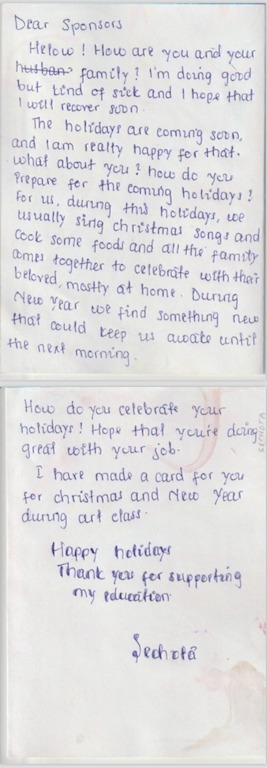 Dear Sponsors
Hellow! How are you and your
husban family? I'm doing good
but kind of sick and I hope that
I will recover soon.
The holidays are coming soon,
and I am really happy for that.
what about you? how do you
prepare for the coming holidays?
For us, during this holidays, we
usually sing christmas songs and
cook some foods and all the family
comes together to celebrate with their
beloved, mostly at home. During
New Year we find something new
that could keep us awake until
the next morning.
How do you celebrate your
holidays? Hope that you're doing
great with your job.
I have made a card for you
for christmas and New Year
during art class.
Happy holidays
Thank you for supporting
my education